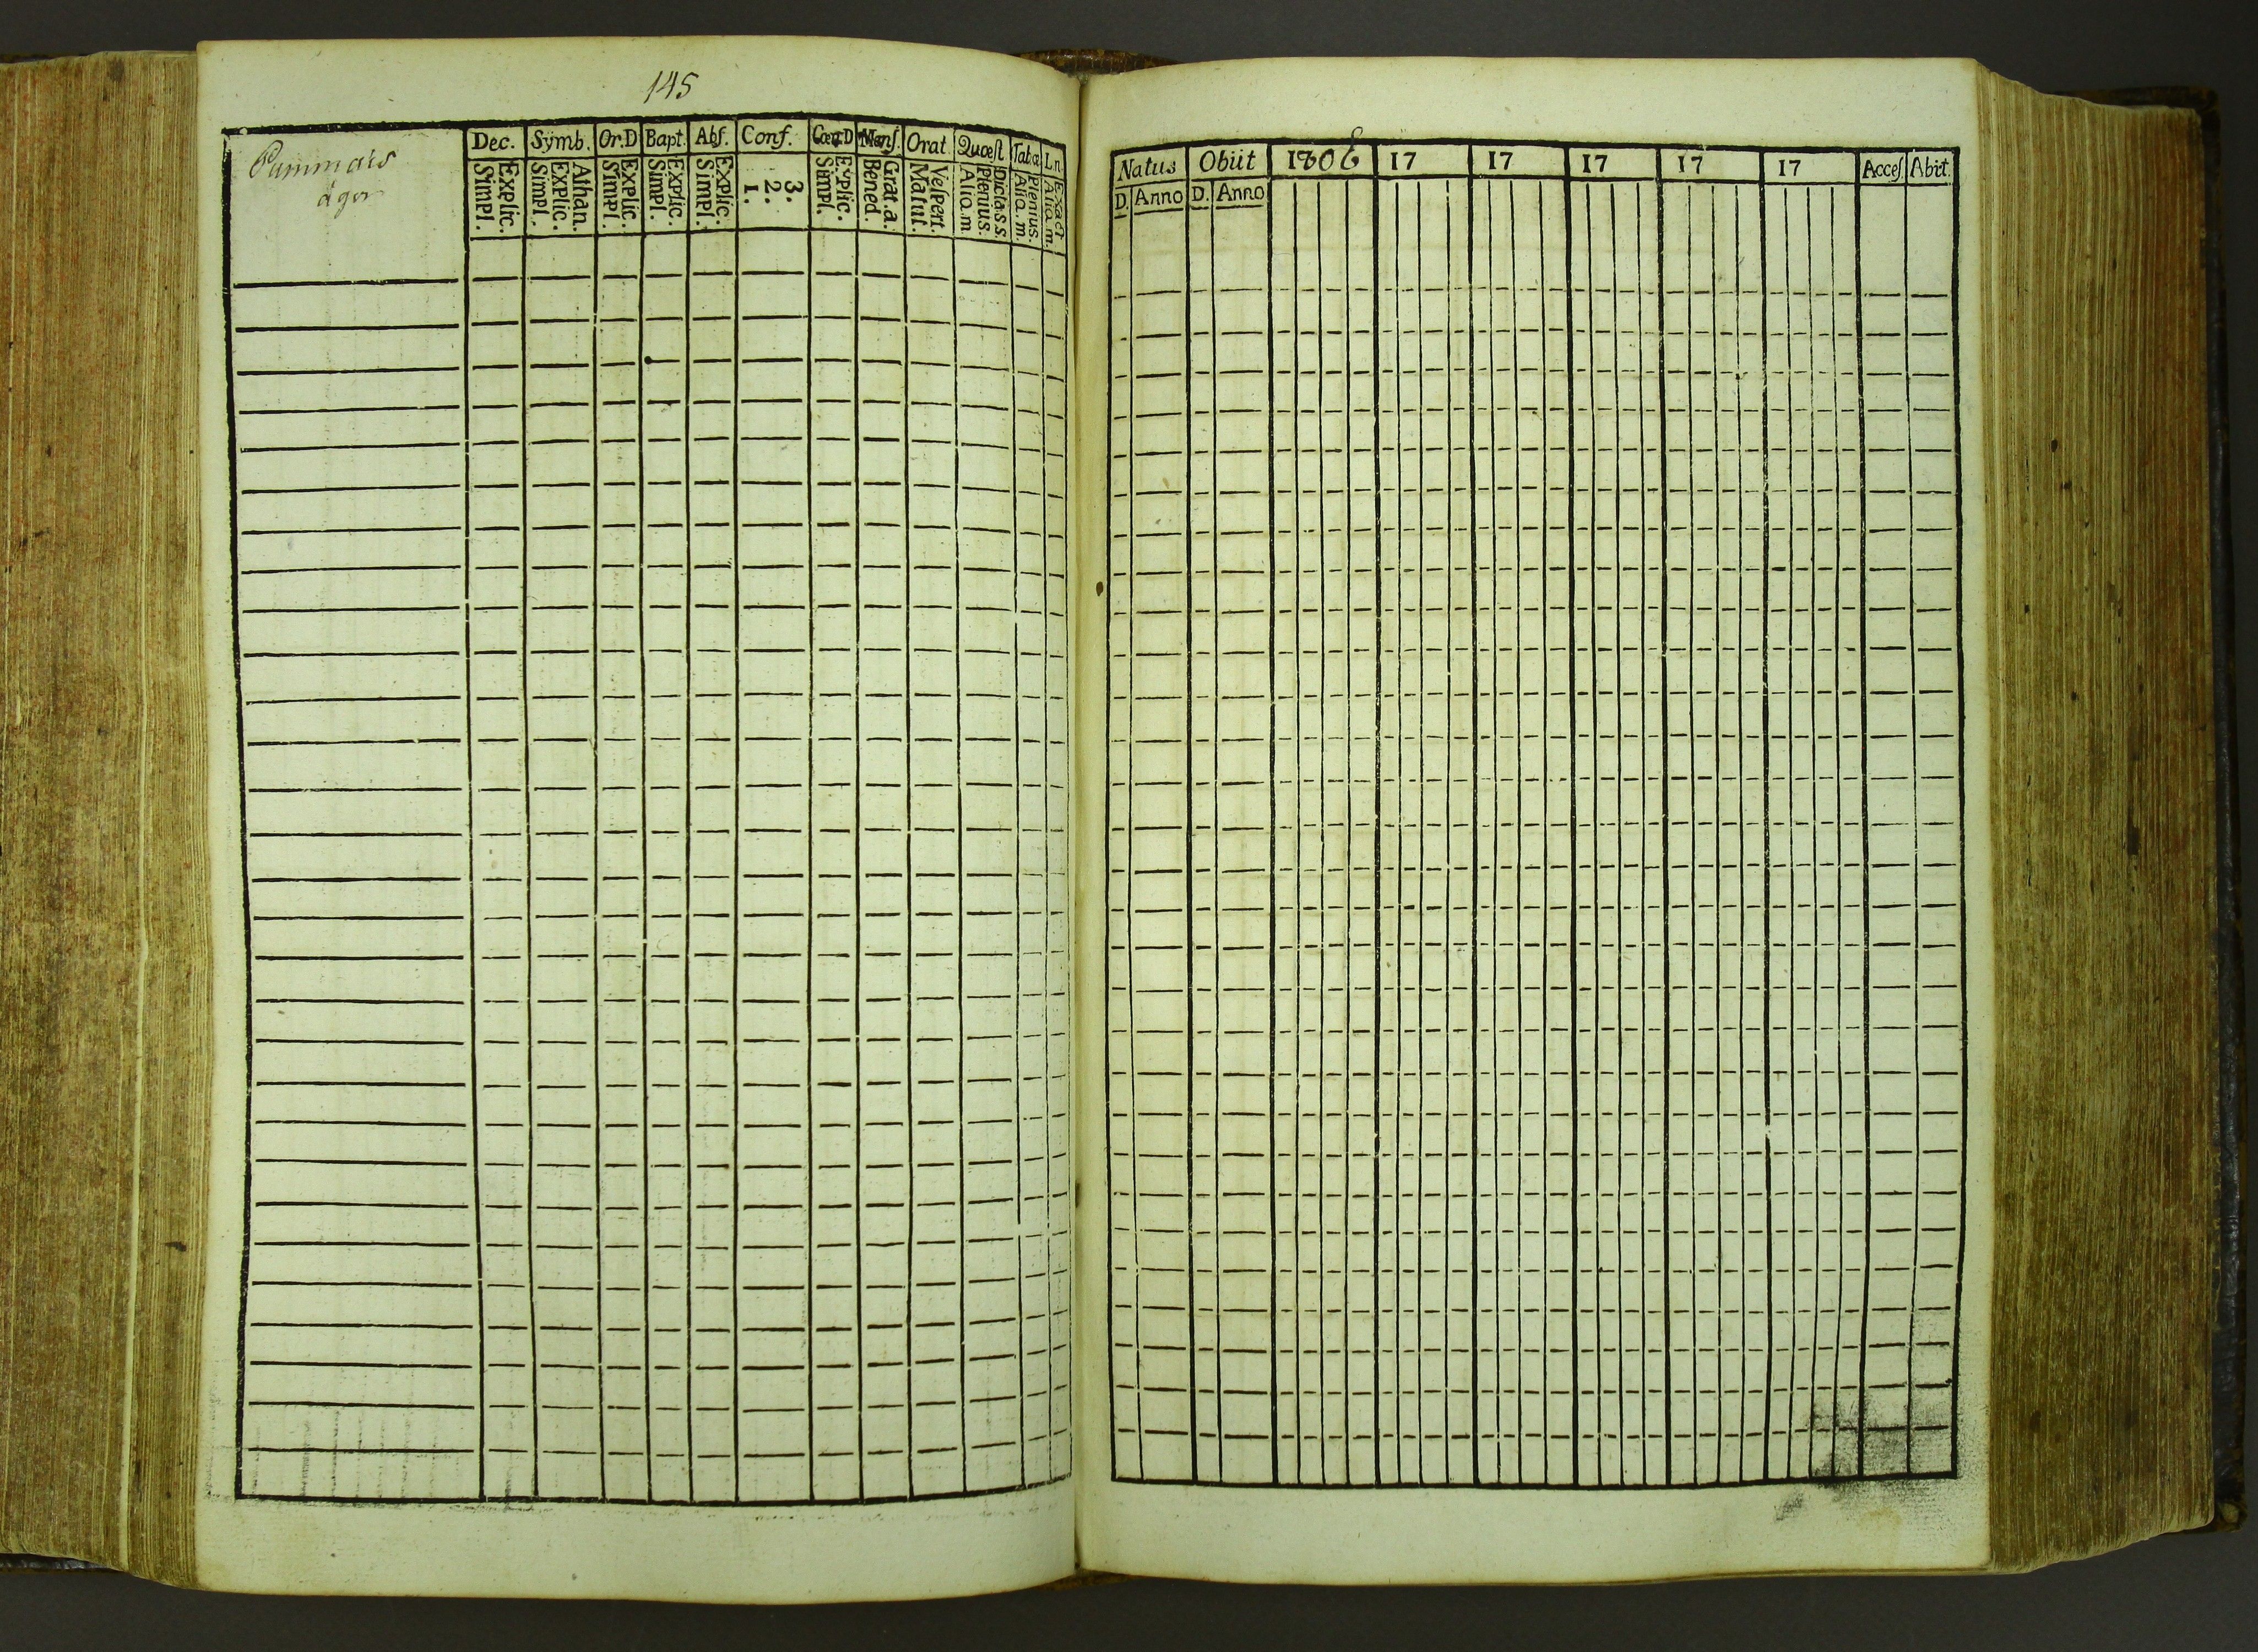 145
Pummais
äger
Dec. Symb. Or.D Bapt. Abſ. Conf. Cœn.D Menſ. Orat. Quæſt Taba L.n
Explic.
Simpl.
Athan.
Explic.
Simpl.
Explic.
Simpl.
Explic.
Simpl.
Explic.
Simpl.
3.
2.
1.
Explic.
Simpl.
Grat.a.
Bened.
Veſpert.
Matut.
Dicta.s.s.
Plenius.
Alio.m
Plenius.
Alia.m.
Exact
Alia.m.
Natus Obiit 1806 17 17 17 17 17 Acceſ. Abit.
D. Anno D. Anno